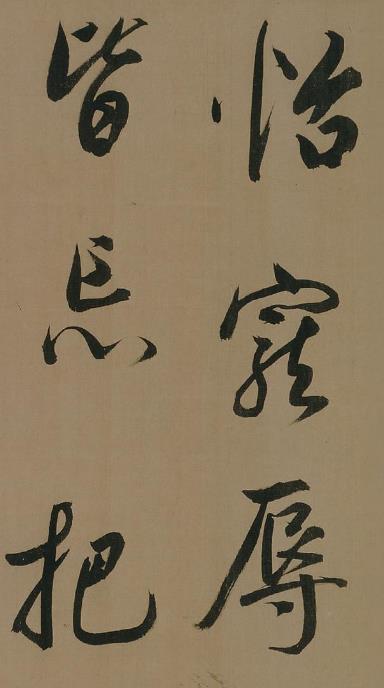 怡寵辱
皆忘把